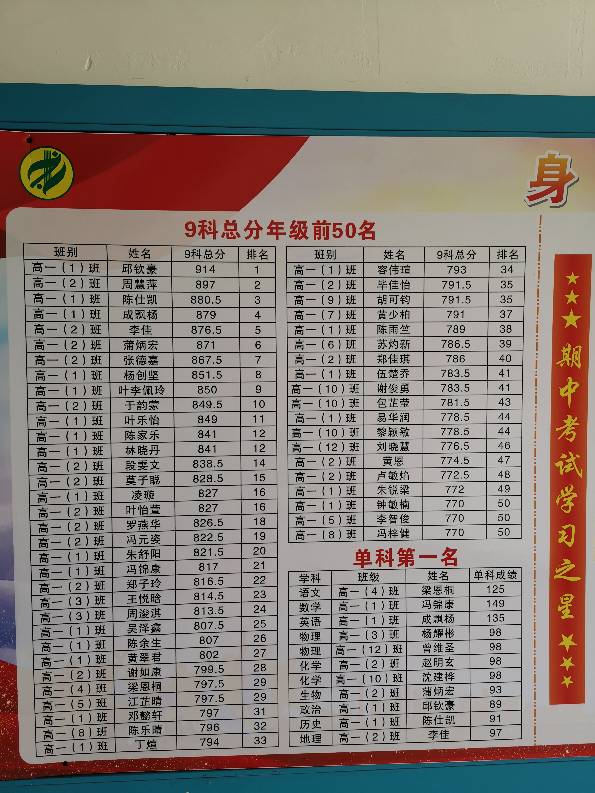 身
9科总分年级前50名
班别 姓名 9科总分 排名
高一(1)班 邱钦豪 914 1
高一(2)班 周慧萍 897 2
高一(1)班 陈仕凯 880.5 3
高一(1)班 成飘杨 879 4
高一(2)班 李佳 876.5 5
高一(2)班 蒲炳宏 871 6
高一(2)班 张德嘉 867.5 7
高一(1)班 杨创坚 851.5 8
高一(1)班 叶李佩玲 850 9
高一(2)班 于韵蒙 849.5 10
高一(1)班 叶乐怡 849 11
高一(1)班 陈家乐 841 12
高一(1)班 林晓丹 841 12
高一(2)班 段雯文 838.5 14
高一(2)班 莫子聪 828.5 15
高一(1)班 凌璇 827 16
高一(2)班 叶怡萱 827 16
高一(2)班 罗燕华 826.5 18
高一(2)班 冯元姿 822.5 19
高一(1)班 朱舒阳 821.5 20
高一(1)班 冯锦康 817 21
高一(2)班 郑子玲 816.5 22
高一(3)班 王悦晗 814.5 23
高一(3)班 周浚淇 813.5 24
高一(1)班 吴泽鑫 807.5 25
高一(1)班 陈余生 807 26
高一(1)班 黄翠君 802 27
高一(2)班 谢如康 799.5 28
高一(4)班 梁恩桐 797.5 29
高一(5)班 江芷晴 797.5 29
高一(1)班 邓懿轩 797 31
高一(8)班 陈乐晴 796 32
高一(1)班 丁煊 794 33
班别 姓名 9科总分 排名
高一(1)班 容伟瑄 793 34
高一(2)班 毕佳怡 791.5 35
高一(9)班 胡可钧 791.5 35
高一(7)班 黄少柏 791 37
高一(1)班 陈雨竺 789 38
高一(6)班 苏灼新 786.5 39
高一(2)班 郑佳琪 786 40
高一(1)班 伍楚乔 783.5 41
高一(10)班 谢俊勇 783.5 41
高一(10)班 包芷莹 781.5 43
高一(1)班 易华润 778.5 44
高一(10)班 黎颖敏 778.5 44
高一(12)班 刘晓慧 776.5 46
高一(2)班 黄恩 774.5 47
高一(2)班 卢敏焰 772.5 48
高一(1)班 朱锐梁 772 49
高一(1)班 钟敏楠 770 50
高一(5)班 李智俊 770 50
高一(8)班 冯梓健 770 50
单科第一名
学科 班级 姓名 单科成绩
语文 高一(4)班 梁恩桐 125
数学 高一(1)班 冯锦康 149
英语 高一(1)班 成飘杨 135
物理 高一(3)班 杨耀彬 98
物理 高一(12)班 曾维圣 98
化学 高一(2)班 赵明玄 98
化学 高一(10)班 沈建桦 98
生物 高一(2)班 蒲炳宏 93
政治 高一(1)班 邱钦豪 89
历史 高一(1)班 陈仕凯 91
地理 高一(2)班 李佳 97
期中考试学习之星